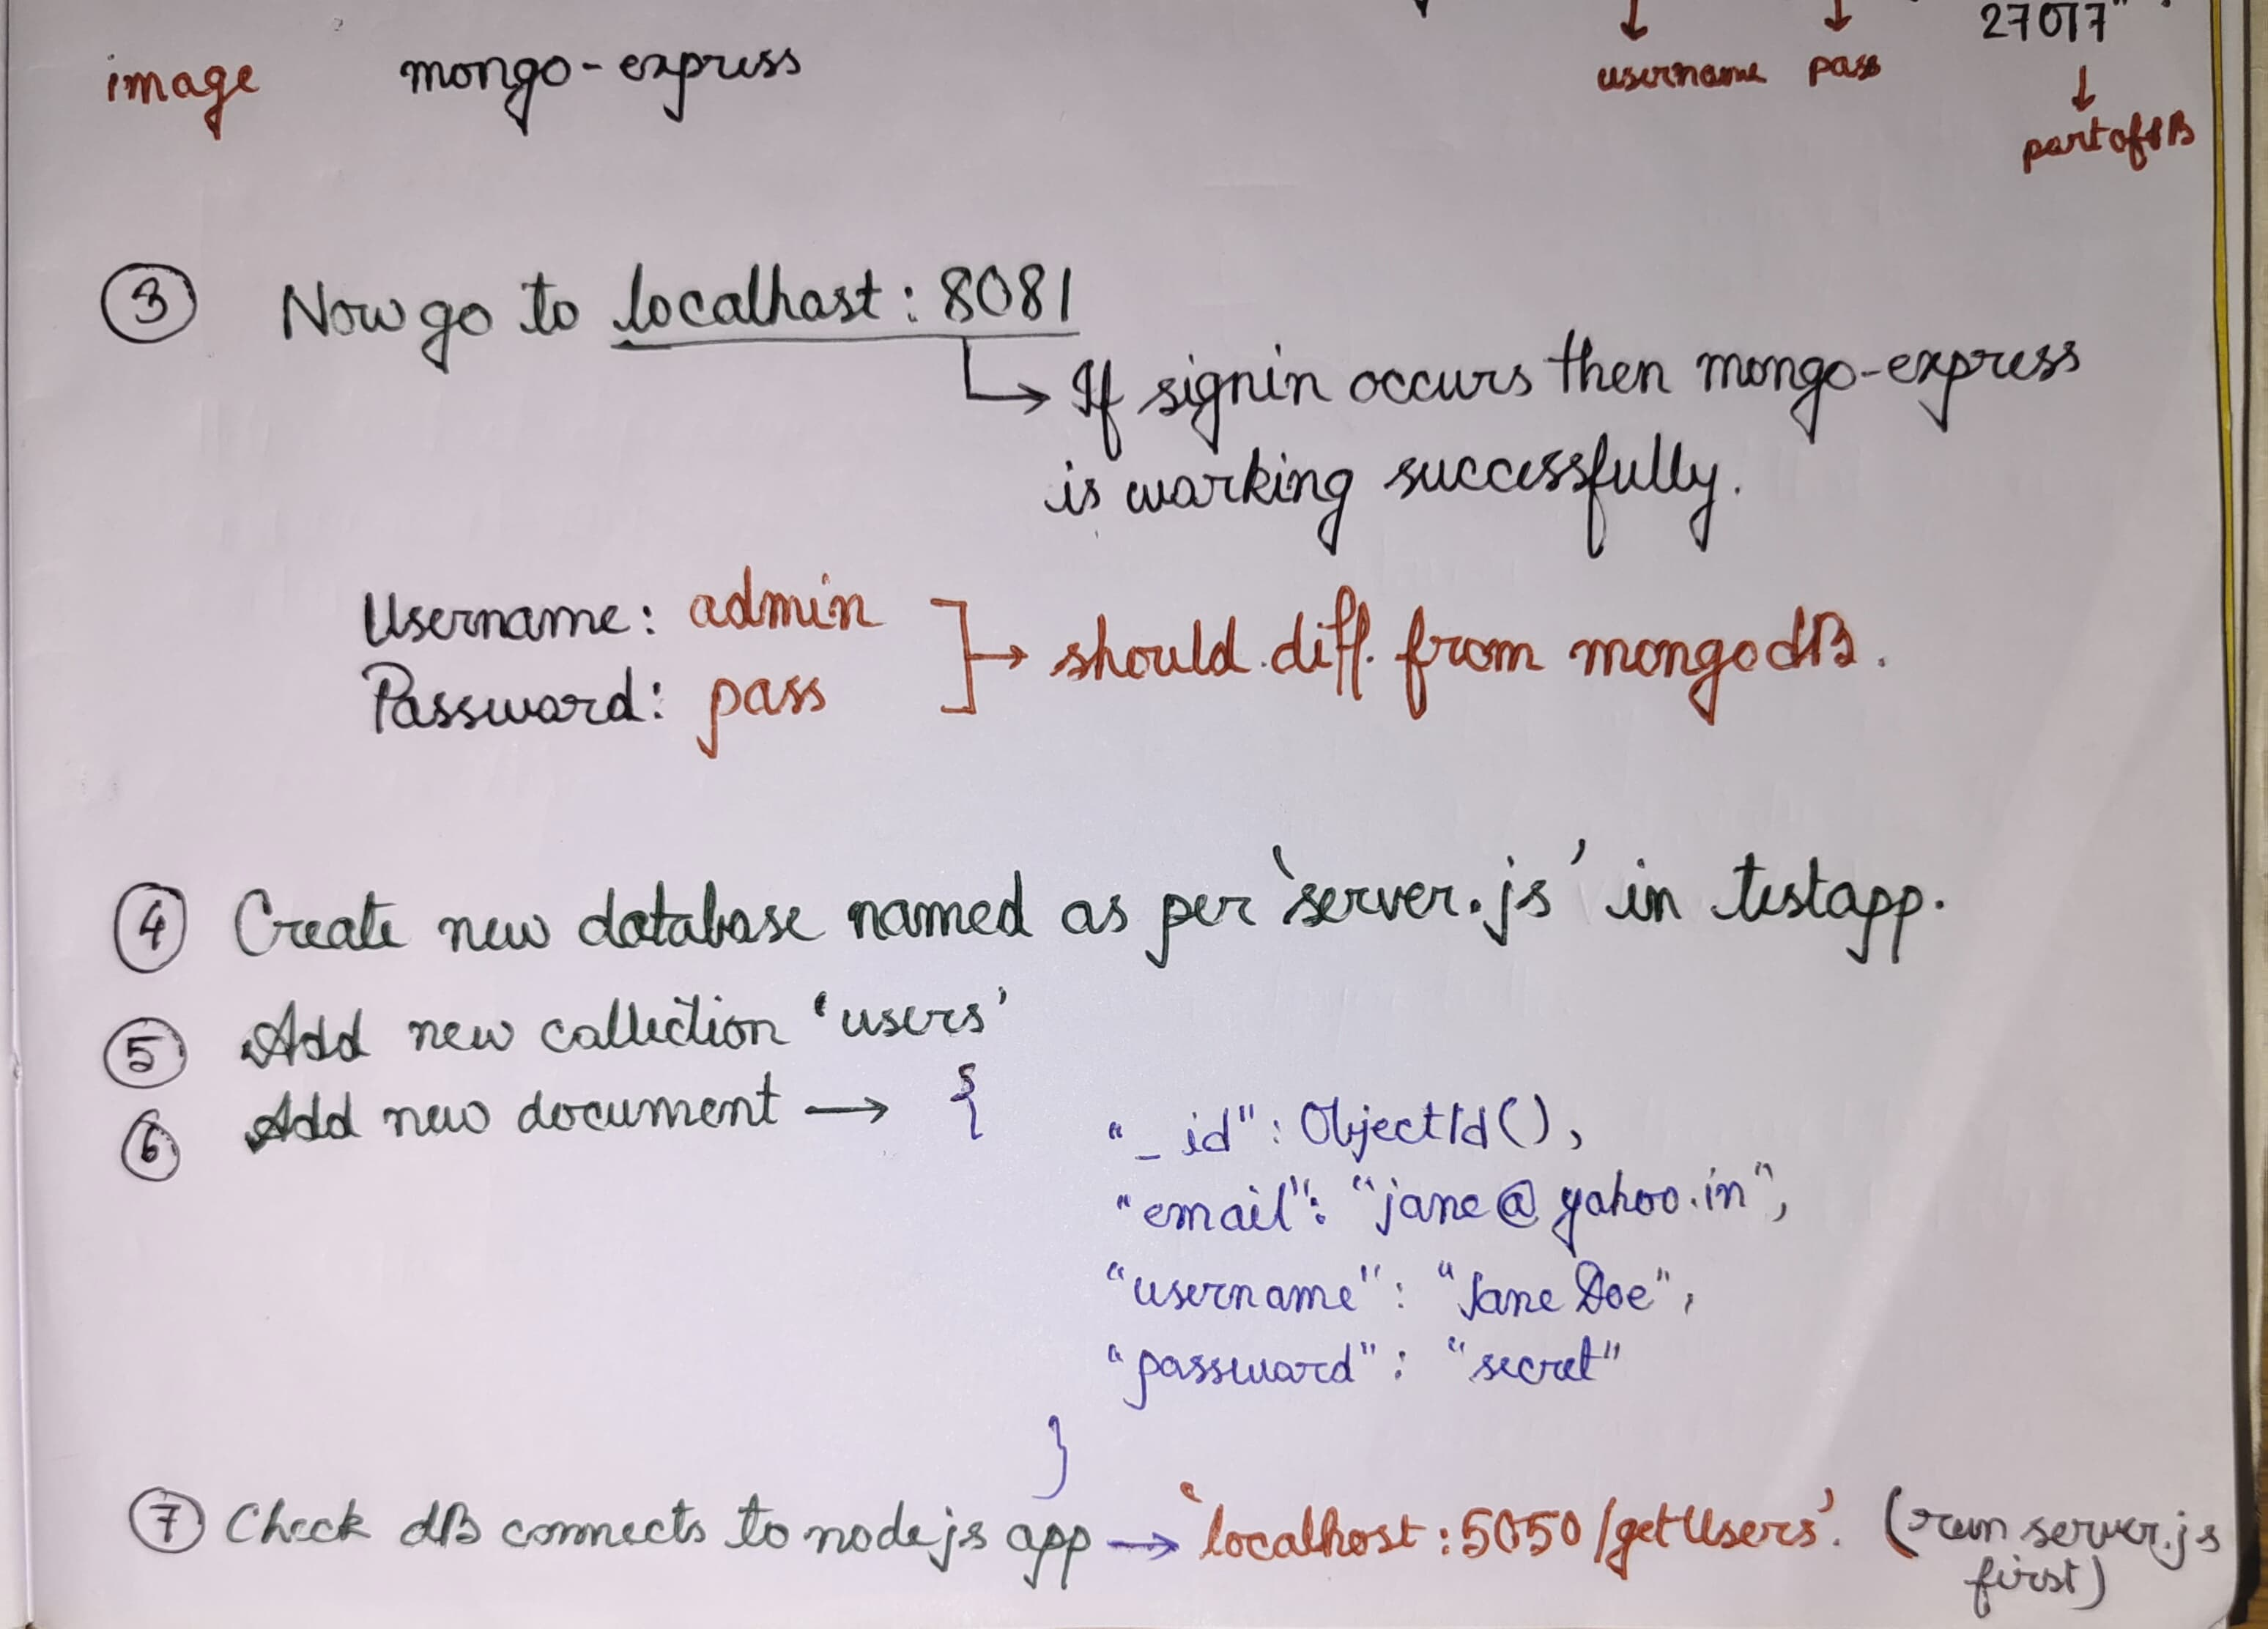 27017"
username pass
image mongo-express
part of dB
③ Now go to localhost : 8081
↳ If signin occurs then mongo-express
is working successfully.
Username: admin
Password: pass
] → should diff. from mongodB.
④ Create new database named as per 'server.js' in testapp.
⑤ Add new collection 'users'
⑥ Add new document → {
"_id": ObjectId(),
"email": "jane@yahoo.in",
"username": "Jane Doe",
"password": "secret"
}
⑦ Check dB connects to nodejs app → 'localhost:5050/getUsers'. (run server.js
first)